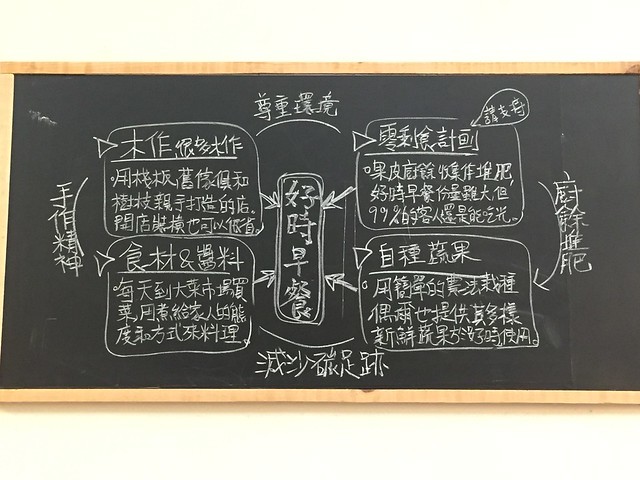 尊重環境
請支持
木作 很多木作
用棧板、舊傢俱和
樹枝親手打造的店。
開店裝潢也可以很省。
零剩食計劃
果皮廚餘收集作堆肥
好時早餐份量雖大但
99%的客人還是能吃光。
手作精神
好時早餐
廚餘堆肥
食材&醬料
每天到大菜市場買
菜,用煮給家人的態
度和方式來料理。
自種蔬果
用簡單的農法栽種
偶爾也提供其多樣
新鮮蔬果於好時使用。
減少碳足跡